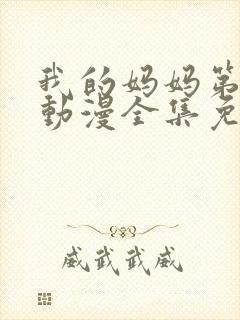 我的妈妈第
動漫全集免
威武武威